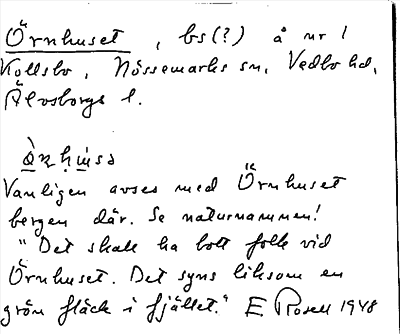 Örnhuset, bs(?) å nr 1
Kollsbo, Nössemarks sn, Vedbo hd,
Älvsborgs l.
Vanligen avses med Örnhuset
bergen där. Se naturnamnen!
"Det skall ha bott folk vid
Örnhuset. Det syns liksom en
grön fläck i fjället." E Rosell 1948